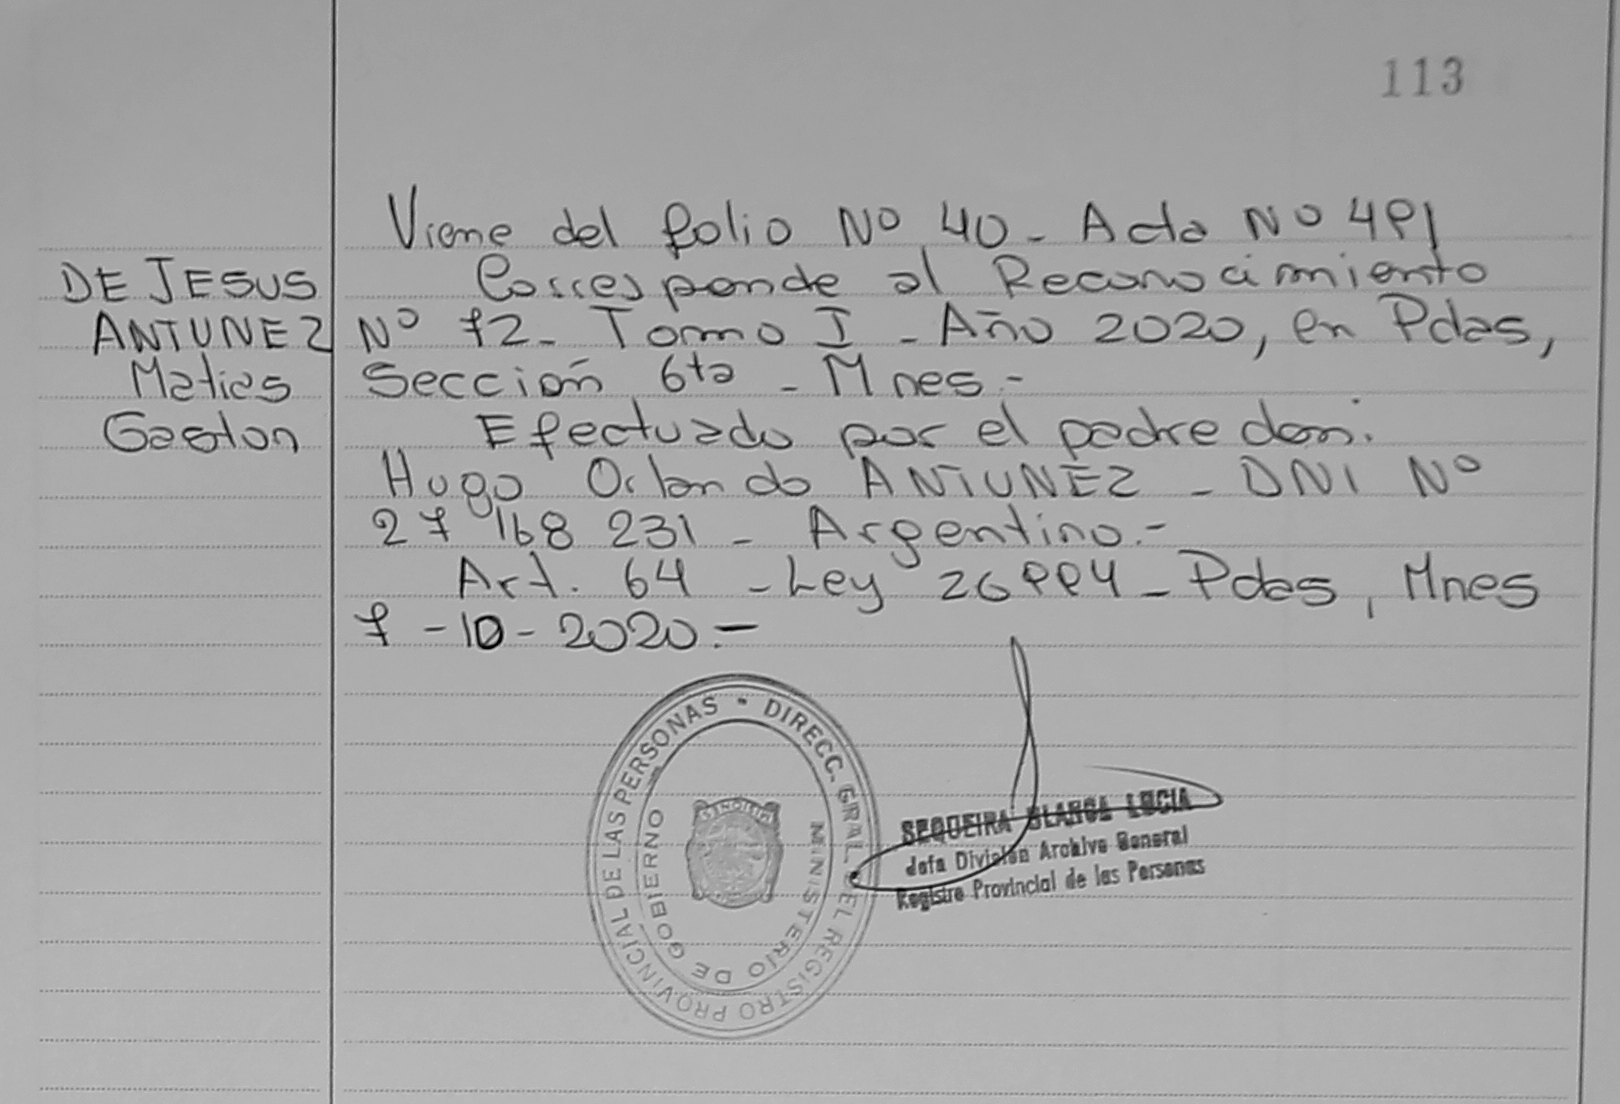 113
Viene del folio Nº 40 - Acta Nº 491
DE JESUS
ANTUNEZ
Matias
Gaston
Corresponde al Reconocimiento
Nº 72 - Tomo I - Año 2020, en Pdas,
Sección 6ta - Mnes.-
Efectuado por el padre don:
Hugo Orlando ANTUNEZ - DNI Nº
27 168 231 - Argentino.-
Art. 64 - Ley 26994 - Pdas, Mnes
7 - 10 - 2020.-
DIRECC. GRAL. DEL REGISTRO PROVINCIAL DE LAS PERSONAS
MINISTERIO DE GOBIERNO
MISIONES
SEQUEIRA BLANCA LUCIA
Jefa División Archivo General
Registro Provincial de las Personas